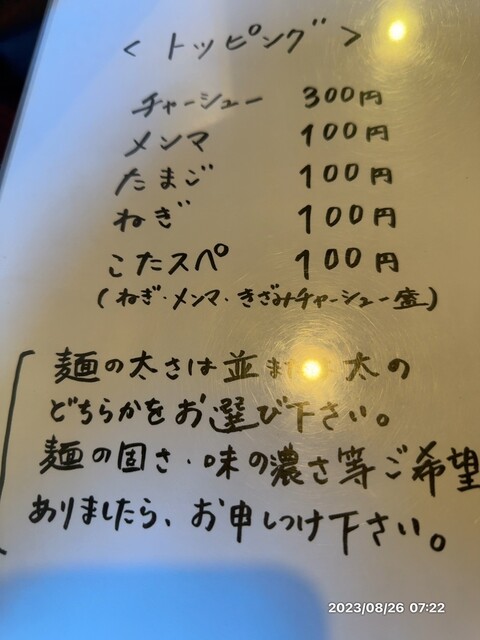 <トッピング>
チャーシュー 300円
メンマ 100円
たまご 100円
ねぎ 100円
こたスペ 100円
(ねぎ・メンマ・きざみチャーシュー盛)
麺の太さは並ま 太の
どちらかをお選び下さい。
麺の固さ・味の濃さ等ご希望
ありましたら、お申しつけ下さい。
2023/08/26 07:22